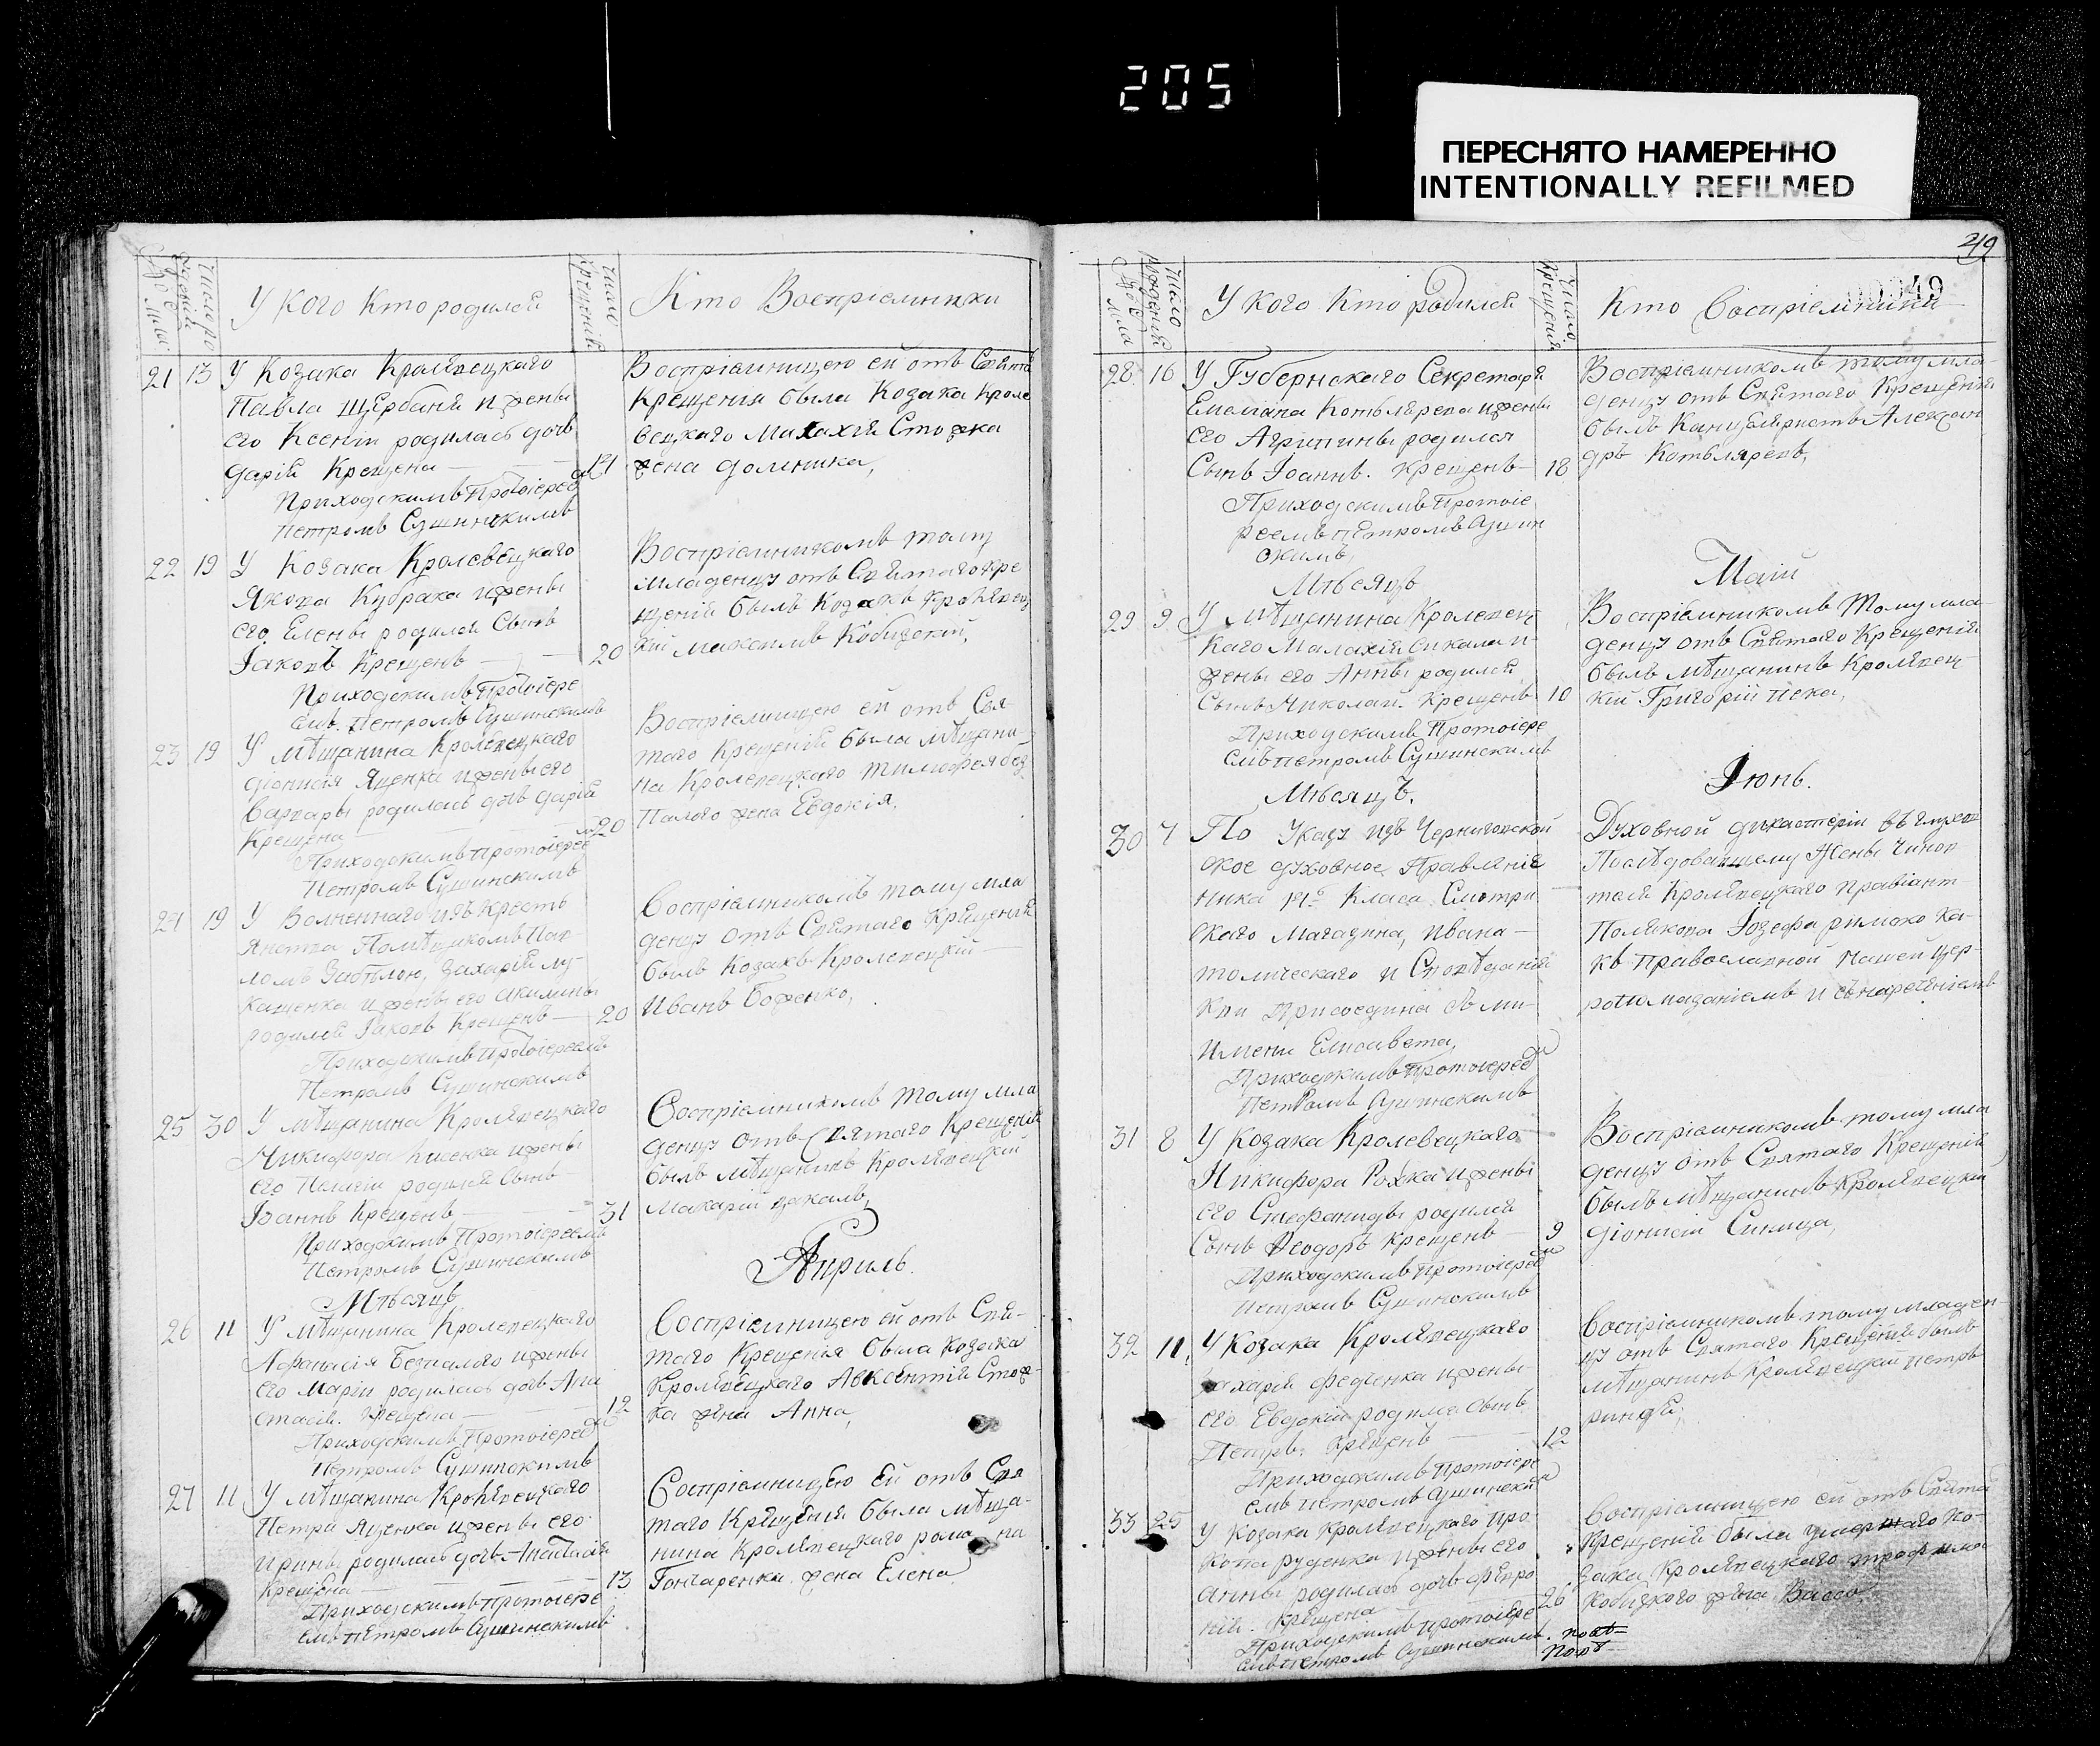 205
ПЕРЕСНЯТО НАМЕРЕННО
INTENTIONALLY REFILMED
Число рожденій
Число крещеній
У кого кто родился
Кто Воспріемники
21 13 У Козака Кролевецкаго
Павла Щербаня и жены
его Ксеніи родилась дочь
Дарія Крещена 14
Приходскимъ Протоіереемъ
Петромъ Сушинскимъ
Воспріемницею ей отъ Свята
Крещенія была Козака Кроле
вецкаго Малахія Стожка
жена Домникія,
22 19 У Козака Кролевецкаго
Якова Кубрака и жены
его Елены родился Сынъ
Іаковъ Крещенъ 20
Приходскимъ Протоіере
емъ Петромъ Сушинскимъ
Воспріемникомъ тому
младенцу отъ Святаго Кре
щенія былъ Козакъ Кролевец
кій Максимъ Кобизскій,
23 19 У Мѣщанина Кролевецкаго
Діонисія Яценка и жены его
Варвары родилась дочь Дарія
Крещена 20
Приходскимъ Протоіереемъ
Петромъ Сушинскимъ
Воспріемницею ей отъ Свя
таго Крещенія была Мѣщани
на Кролевецкаго Тимофея Без
палого жена Евдокія,
24 19 У Волненнаго изъ крестъ
янства Помѣщикомъ Пав
ломъ Забѣлою, Захарія Лу
кашенка и жены его Акилины
родился Іаковъ Крещенъ 20
Приходскимъ Протоіереемъ
Петромъ Сушинскимъ
Воспріемникомъ тому мла
денцу отъ Святаго Крещенія
былъ Козакъ Кролевецкій
Иванъ Боженко,
25 30 У Мѣщанина Кролевецкаго
Никифора Лисенка и жены
его Пелагіи родился Сынъ
Іоаннъ Крещенъ 31
Приходскимъ Протоіереемъ
Петромъ Сушинскимъ
Воспріемникомъ тому мла
денцу отъ Святаго Крещенія
былъ мѣщанинъ Кролевецкій
Макарій
Мѣсяцъ Априль.
26 11 У Мѣщанина Кролевецкаго
Афанасія Безпалого и жены
его Маріи родилась дочь Ана
стасія. Крещена 12
Приходскимъ Протоіереемъ
Петромъ Сушинскимъ
Воспріемницею ей отъ Свя-
таго Крещенія была Козака
Кролевецкаго Авксентія Стож-
ка жена Анна,
27 11 У мѣщанина Кролевецкаго
Петра Яценка и жены его
Ирины родилась дочь Анастасія
Крещена 13
Приходскимъ Протоіере
емъ Петромъ Сушинскимъ
Воспріемницею ей отъ Свя
таго Крещенія была мѣща-
нина Кролевецкаго романа
Гончаренка жена Елена
219
00049
Число рожденій
Число крещеній
У кого кто родился
Кто Воспріемники
28 16 У Губернскаго Секретаря
Емелiана Котьлярева и жены
его Агрипины родился
Сынъ Іоаннъ. Крещенъ 18
Приходскимъ Протоіе
реемъ Петромъ Сушин
скимъ
Воспріемникомъ тому мла-
денцу отъ Святаго Крещенія
былъ Канцеляристъ Алексан
дръ Котьляревъ,
Мѣсяцъ Маій
29 9 У Мѣщанина Кролевец
каго Малахія Сикала и
жены его Анны родился
Сынъ Николай. Крещенъ 10
Приходскимъ Протоіере
емъ Петромъ Сушинскимъ
Воспріемникомъ Тому мла-
денцу отъ Святаго Крещенія
былъ мѣщанинъ Кролевец-
кій Григорій
Мѣсяцъ. Іюнь.
30 7 По Указу изъ Черниговской Духовной дикастеріи въ глухов
ское духовное Правленіе Послѣдовавшему Жены Чинов
ника 14го Класа Смотри теля Кролевецкаго Правіант
скаго Магазина, Ивана Полякова Іозефа римско Ка-
толическаго изповѣданія къ Православной нашей Цер
кви Присоединена ѵми- ропомазаніемъ и съ нареченіемъ
Имени Елисавета,
Приходскимъ Протоіереемъ
Петромъ Сушинскимъ
31 8 У Козака Кролевецкаго
Никифора Рожка и жены
его Стефаниды родился
Сынъ Ѳеодоръ Крещенъ 9
Приходскимъ Протоіереемъ
Петромъ Сушинскимъ
Воспріемникомъ тому мла
денцу отъ Святаго Крещенія
былъ мѣщанинъ Кролевецкій
Діонисій Синица,
32 11 У Козака Кролевецкаго
Захарія Федченка и жены
его Евдокіи родился Сынъ
Петръ. Крещенъ 12
Приходскимъ Протоіере
емъ Петромъ Сушинскимъ
Воспріемникомъ тому младен
цу отъ Святаго Крещенія былъ
мѣщанинъ Кролевецкій Петръ
33 25 У Козака Кролевецкаго Про
копа Руденка и жены его
Анны родилась дочь Февро
нія. Крещена 26
Приходскимъ Протоіере
емъ Петромъ Сушинскимъ.
Воспріемницею ей отъ Свята
Крещенія была умершаго Ко-
зака Кролевецкаго трофима
Кобизкого жена Васса